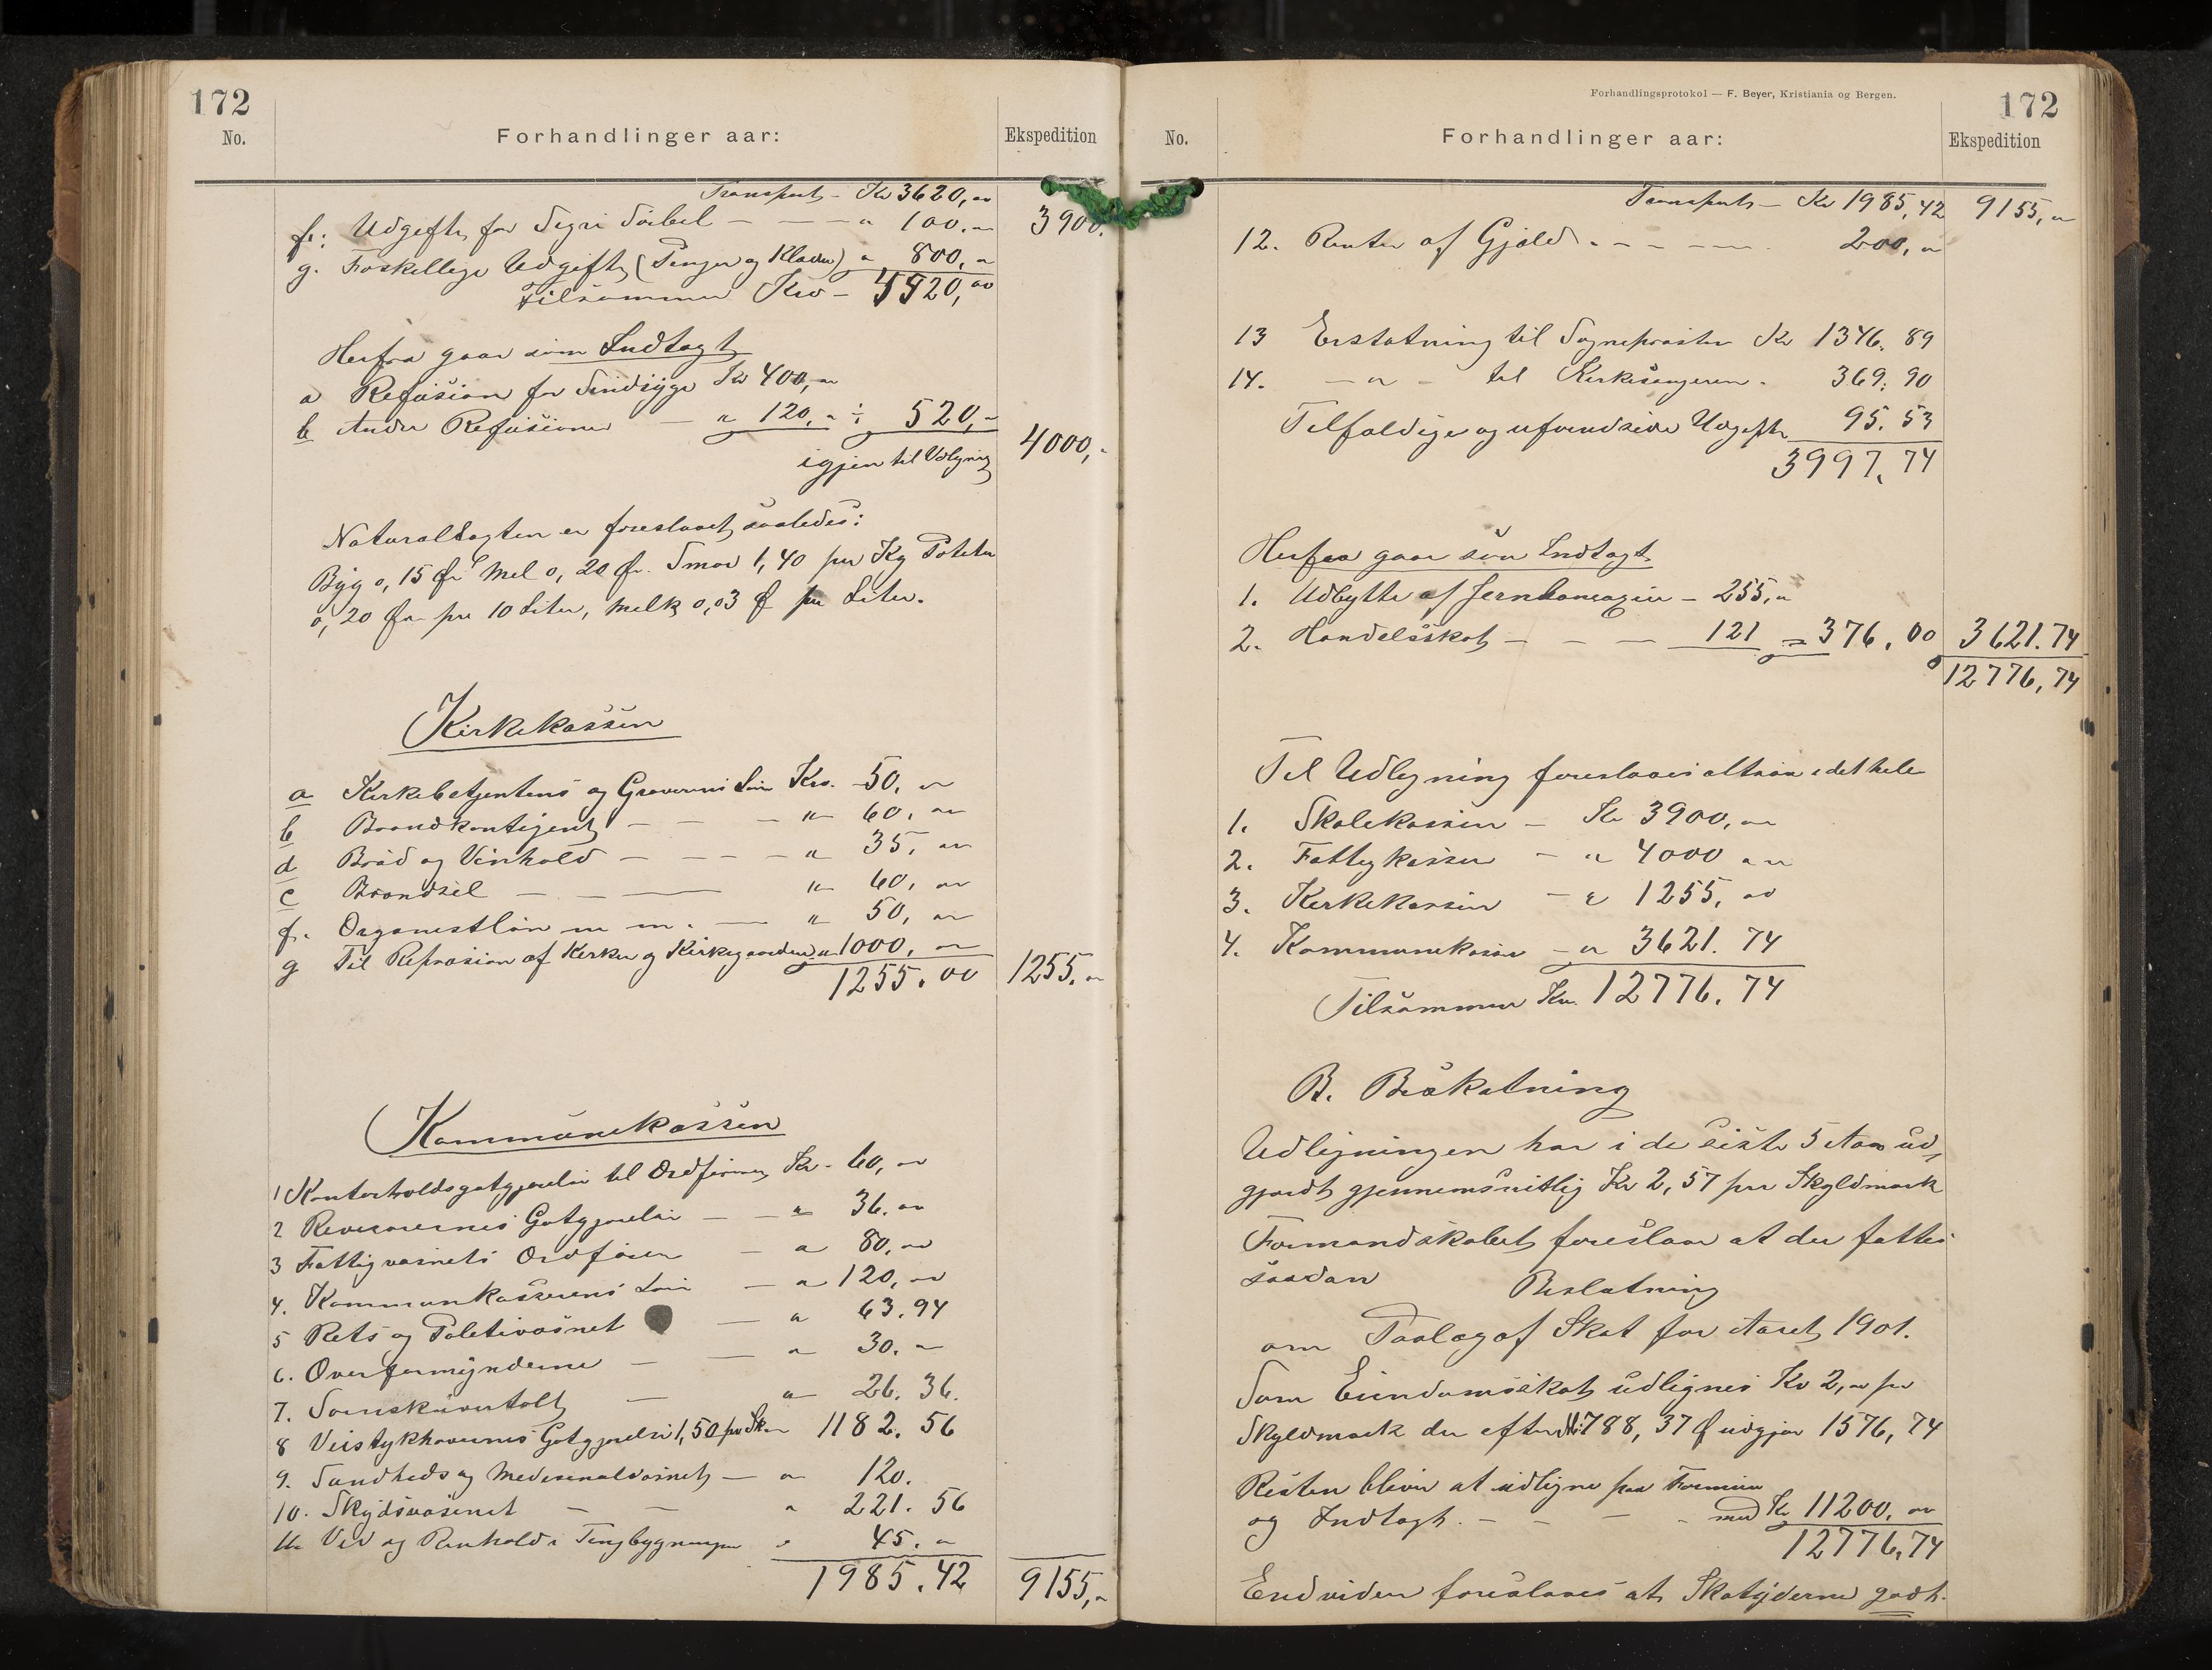 172
No.
Forhandlinger aar:
Ekspedition
Transport – Kr 3620,00
f: Udgifter for Sigri Særbel – – – " 100.00 3900.
g. Forskellige Udgifter (Penger og Klæder) " 800,00
Tilsammen Kro – 4520,00
Herfra gaar som Indtægt
a Refusion for Sindsyge Kr 400,00
b Andre Refusioner – " 120, " ÷ 520,–
igjen til Udligning 4000,–
Naturaltagten er foreslaaet saaledes:
Byg 0,15 Øre Mel 0,20 Ør. Smør 1,40 per Kg Poteter
0,20 Øre per 10 Liter, Melk 0,03 Ø per Liter.
Kirkekassen
a Kirkebetjentens og Graverens Løn Kro. 50, 00
b Brandkontigent – – – " 60, 00
d Brød og Vinhold – – – – " 35, 00
e Brændsel – – – " 60, 00
f. Organistløn m m. – – " 50, 00
g Til Repration af Kirken og Kirkegaarden " 1000, 00
1255.00 1255.00
Kommunekassen
1 Kontorholdsgodtgjørelse til Ordføreren Kr. 60, 00
2 Revisorernes Godtgjørelse – – " 36. 00
3 Fattigvæsnets Ordfører – " 80, 00
4. Kommunkasserens Løn – " 120, 00
5 Rets og Politivæsnet – " 63.94
6. Overformynderne – – " 30. 00
7. – " 26. 36.
8 Veistykhavernes Godtgjørelse 1,50 pr Skm 1182. 56
9. Sundheds og Medesinalvæsnet – " 120.
10. Skydsvæsenet – – " 221. 56
11. Ved og Renhold i Tingbygningen " 45. 00
1985.42 9155,00
Forhandlingsprotokol — F. Beyer, Kristiania og Bergen.
172
No.
Forhandlinger aar:
Ekspedition
Transport – Kr 1985,42 9155,00
12. Renter af Gjæld. – – – – – 200,00
13 Erstatning til Sognepræsten Kr 1346. 89
14. – " – til Kirkesangeren. 369. 90
Tilfældige og uforudseede Udgifter 95. 53
3997. 74
Herfra gaar som Indtægt.
1. Udbytte af – 255,00
2. Handelsskat – – – 121 = 376,00 3621.74
12776,74
Til Udligning foreslaaes altsaa i det hele
1. Skolekassen – Kr 3900,00
2. Fattigkassen – " 4000 00
3. Kirkekassen – " 1255, 00
4. Kommunekassen – " 3621. 74
Tilsammen Kr. 12776. 74
B. Beskatning
Udligningen har i de siste 5 Aar ud,
gjordt gjennemsnitlig Kr 2,57 per Skyldmark
Formandskabet foreslaar at der fattes
saadan Beslutning
om Paalæg af Skat for Aaret 1901.
Som Eiendomsskat udlignes Kr 2,00 per
Skyldmark der efter M: 788,37 Ø udgjør 1576,74
Resten bliver at udligne paa Formue
og Indtægt. – – – – med Kr 11200, 00
12776,74
Endvidere foreslaaes at Skatyderne godt-